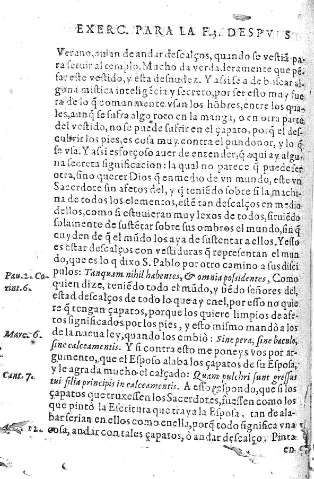 EXERC. PARA LA F.3. DESPVES
Verano, auian de andar descalços, quando se vestiã pa
ra seruir al templo. Mucho da verdaderamente que pẽ
sar este vestido, y esta desnudez. Y assi se à de buscar al
guna mistica inteligẽcia y secreto, por ser esto muy fue
ra de lo q̃ comunmente vsan los hõbres, entre los qua
les, aunq̃ se sufra algo roto en la manga, o en otra parte
del vestido, no se puede sufrir en el çapato, porq̃ el des
cubrir los pies, es cosa muy contra el pundonor, y lo q̃
se vsa. Y assi es forçoso auer de entender, q̃ aqui ay algu
na secreta significacion: la qual no parece q̃ puede ser
otra, sino querer Dios q̃ enmedio de vn mundo, estè vn
Sacerdote sin afetos del, y q̃ teniẽdo sobre si la machi
na de todos los elementos, estè tan descalços en medio
dellos, como si estuuieran muy lexos de todos, siruiẽdo
solamente de sustẽtar sobre sus ombros el mundo, sin q̃
cuyden de q̃ el mũdo los aya de sustentar a ellos. Y esso
es estar descalços con vestiduras q̃ representan el mun
do, que es lo q̃ dixo S. Pablo por otro camino a sus disci
pulos: Tanquam nihil habentes, & omnia possidentes, Como
quien dize, teniẽdo todo el mũdo, y siẽdo señores del,
estad descalços de todo lo que ay enel, por esso no quie
re q̃ tengan çapatos, porque los quiere limpios de afe
tos significados por los pies, y esto mismo mandò a los
de la nueua ley, quando los embiò: Sine pera, sine baculo,
sine calceamentis. Y si contra esto me poneys vos por ar
gumento, que el Esposo alaba los çapatos de su Esposa,
y le agrada mucho el calçado: Quàm pulchri sunt gressus
tui filia principis in calceamentis. A esto respondo, que si los
çapatos que truxessen los Sacerdotes, fuessen como los
que pintò la Escritura que traya la Esposa, tan de ala-
bar serian en ellos como enella, porq̃ todo significa vna
cosa, andar con tales çapatos, ò andar descalço. Pinta
en
Pau. 2. Co
rint. 6.
Marc. 6.
Cant. 7.
12.